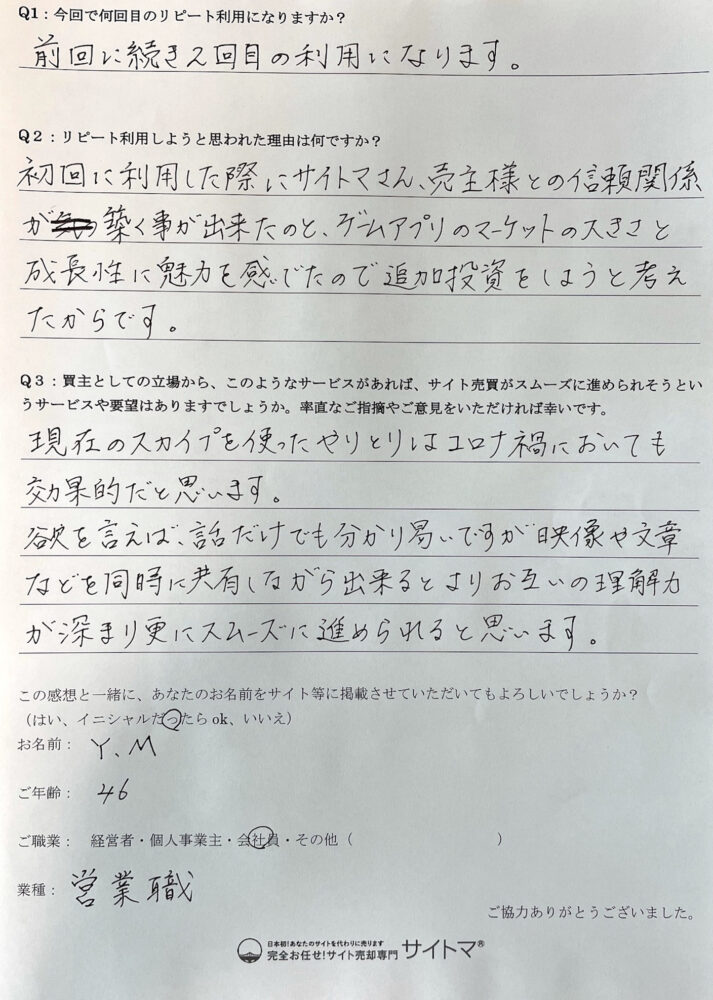 Q1：今回で何回目のリピート利用になりますか？
前回に続き2回目の利用になります。
Q2：リピート利用しようと思われた理由は何ですか？
初回に利用した際にサイトマさん、売主様との信頼関係
が築く事が出来たのと、ゲームアプリのマーケットの大きさと
成長性に魅力を感じたので追加投資をしようと考え
たからです。
Q3：買主としての立場から、このようなサービスがあれば、サイト売買がスムーズに進められそうとい
うサービスや要望はありますでしょうか。率直なご指摘やご意見をいただければ幸いです。
現在のスカイプを使ったやりとりはコロナ禍においても
効果的だと思います。
欲を言えば、話だけでも分かり易いですが映像や文章
などを同時に共有しながら出来るとよりお互いの理解力
が深まり更にスムーズに進められると思います。
この感想と一緒に、あなたのお名前をサイト等に掲載させていただいてもよろしいでしょうか？
（はい、イニシャルだったら ok、いいえ）
お名前： Y.M
ご年齢： 46
ご職業： 経営者・個人事業主・会社員・その他（ ）
業種： 営業職
ご協力ありがとうございました。
日本初！あなたのサイトを代わりに売ります
完全お任せ！サイト売却専門 サイトマ®